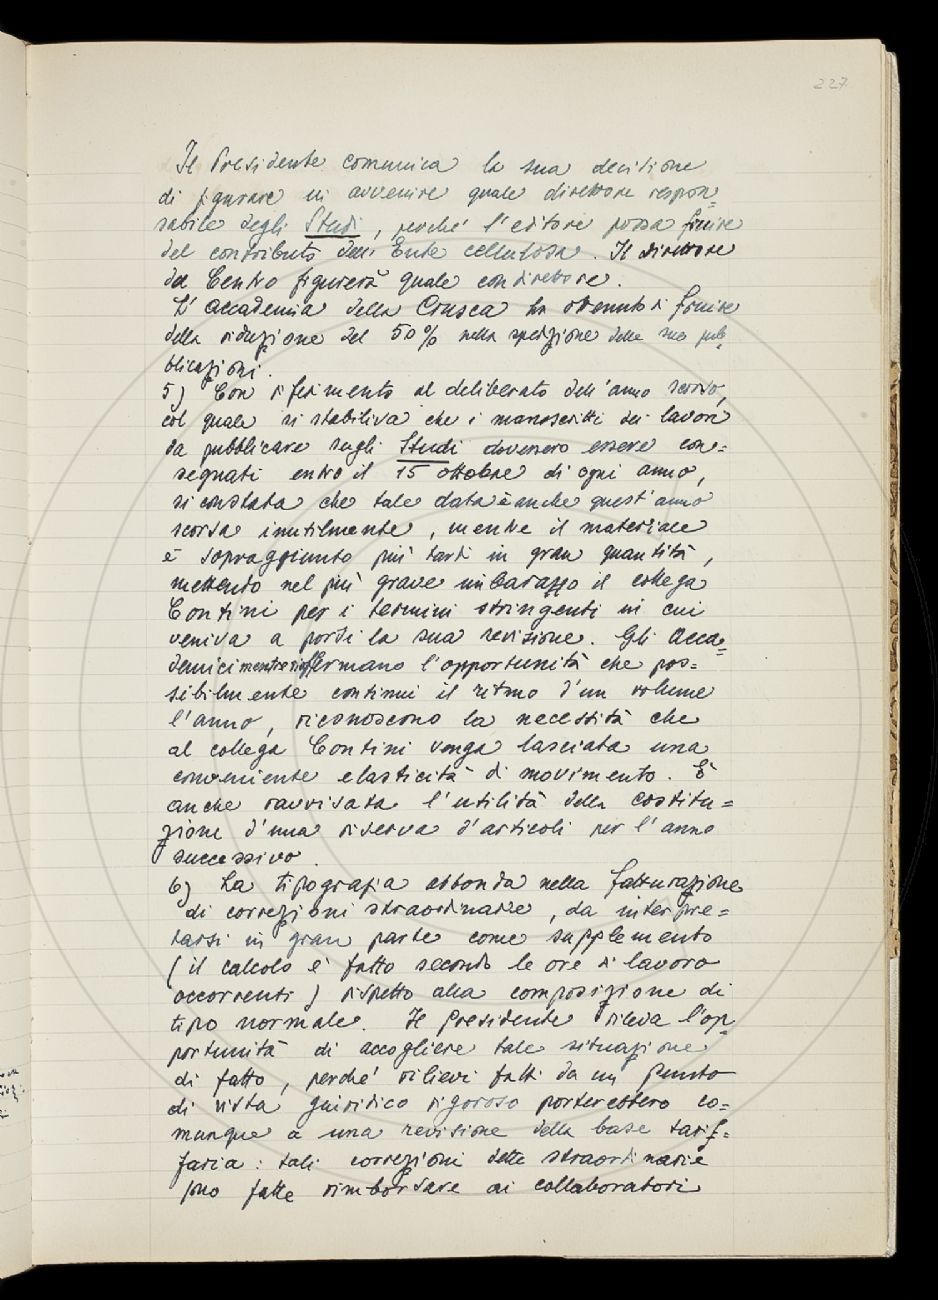 227
Il Presidente comunica la sua decisione
di figurare in avvenire quale direttore respon=
sabile degli Studi, perché l'editore possa fruire
del contributo dell'Ente cellulosa. Il direttore
del Centro figurerà quale condirettore.
L'Accademia della Crusca ha ottenuto di fruire
della riduzione del 50% nella spedizione delle sue pub=
blicazioni.
5) Con riferimento al deliberato dell'anno scorso,
col quale si stabiliva che i manoscritti dei lavori
da pubblicare sugli Studi dovessero essere con=
segnati entro il 15 ottobre di ogni anno,
si constata che tale data è anche quest'anno
scorsa inutilmente, mentre il materiale
è sopraggiunto più tardi in gran quantità,
mettendo nel più grave imbarazzo il collega
Contini per i termini stringenti in cui
veniva a porsi la sua revisione. Gli Acca=
demici mentre riaffermano l'opportunità che pos=
sibilmente continui il ritmo d'un volume
l'anno, riconoscono la necessità che
al collega Contini venga lasciata una
conveniente elasticità di movimento. È
anche ravvisata l'utilità della costitu=
zione d'una riserva d'articoli per l'anno
successivo.
6) La tipografia abbonda nella fatturazione
di correzioni straordinarie, da interpre=
tarsi in gran parte come supplemento
(il calcolo è fatto secondo le ore di lavoro
occorrenti) rispetto alla composizione di
tipo normale. Il Presidente rileva l'op=
portunità di accogliere tale situazione
di fatto, perché rilievi fatti da un punto
di vista giuridico rigoroso porterebbero co=
munque a una revisione della base tarif=
faria: tali correzioni dette straordinarie
sono fatte rimborsare ai collaboratori